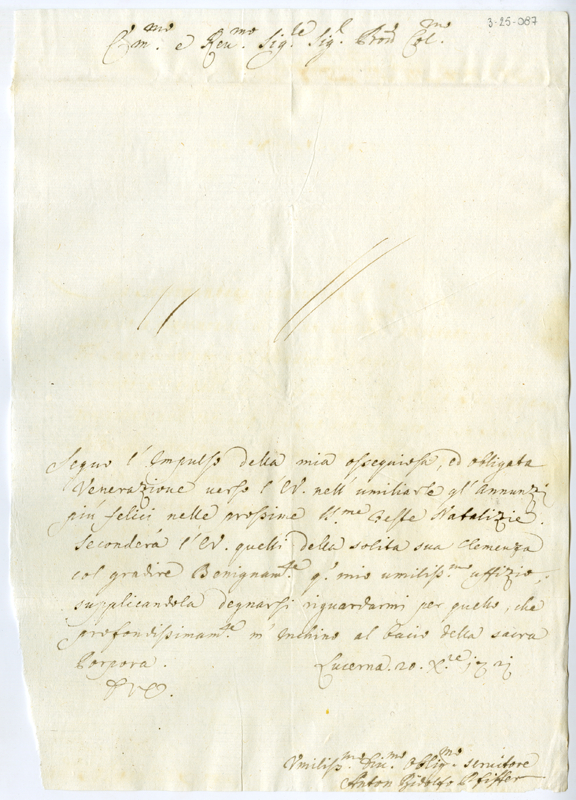 3-25-087
Em.mo e Rev.mo Sig.re Sig.r Pron Col.mo
Seguo l'Impulso della mia ossequiosa, ed obligata
Venerazione verso l'EV. nell'umiliarle gl'Annunzj
piu felici nelle prossime SS.me Feste Natalizie.
Seconderà l'EV. quelli della solita sua Clemenza
col gradire Benignam.te q.o mio umiliss.mo uffizio,
supplicandola degnarsi riguardarmi per quello, che
profondissimam.te m'Inchino al bacio della sacra
Porpora.
Lucerna 20. X.re
Umiliss.mo Div.mo Oblig.mo servitore
Anton Ridolfo Pfiffer